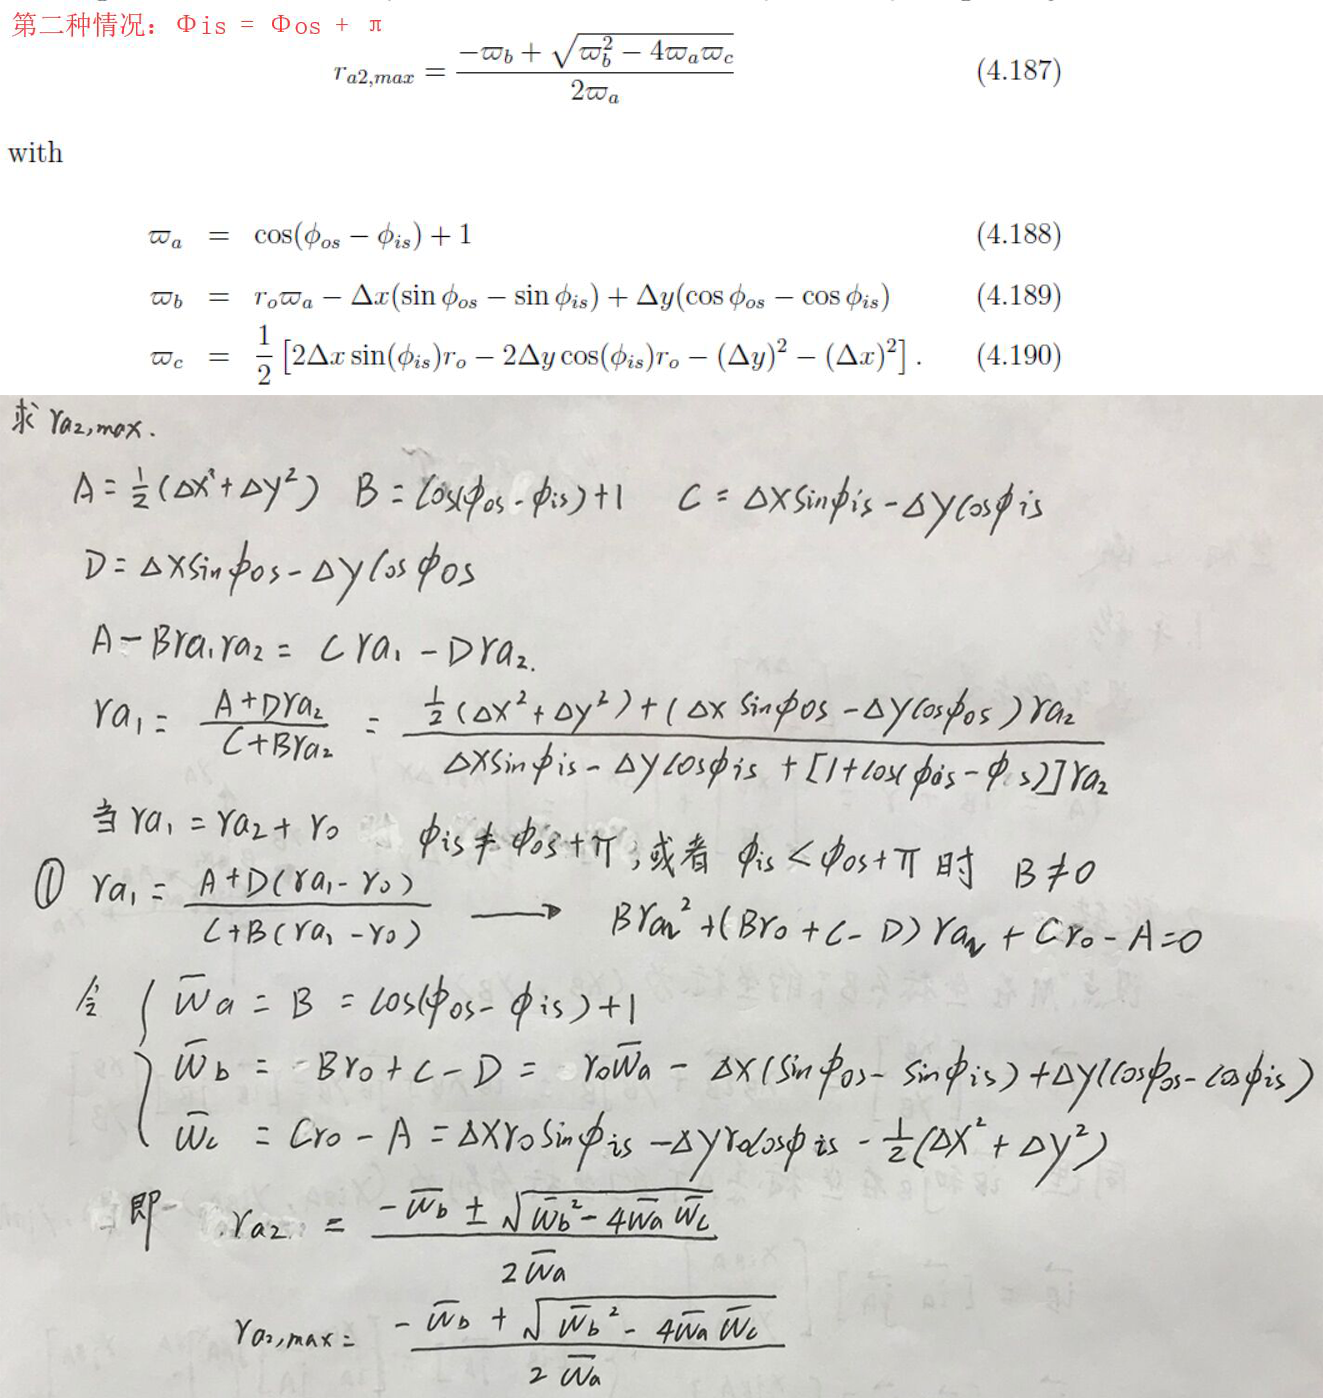 第二种情况：Φis = Φos + π
r_{a2,max} = \frac{-ϖ_b + \sqrt{ϖ_b^2 - 4ϖ_aϖ_c}}{2ϖ_a} (4.187)
with
ϖ_a = cos(ϕ_{os} − ϕ_{is}) + 1 (4.188)
ϖ_b = r_oϖ_a − Δx(sin ϕ_{os} − sin ϕ_{is}) + Δy(cos ϕ_{os} − cos ϕ_{is}) (4.189)
ϖ_c = \frac{1}{2} [2Δx sin(ϕ_{is})r_o − 2Δy cos(ϕ_{is})r_o − (Δy)^2 − (Δx)^2] . (4.190)
求 ra_2,max.
A = \frac{1}{2}(Δx^2 + Δy^2) B = cos(ϕos - ϕis)+1 C = Δx sinϕis - Δy cosϕis
D = Δx sinϕos - Δy cosϕos
A - Bra_1ra_2 = Cra_1 - Dra_2.
ra_1 = \frac{A+Dra_2}{C+Bra_2} = \frac{\frac{1}{2}(Δx^2+Δy^2)+(Δx sinϕos - Δy cosϕos)ra_2}{Δx sinϕis - Δy cosϕis + [1+cos(ϕos - ϕis)]ra_2}
当 ra_1 = ra_2 + r_0 ϕis ≠ ϕos + π, 或者 ϕis < ϕos + π 时 B ≠ 0
① ra_1 = \frac{A+D(ra_1 - r_0)}{C+B(ra_1 - r_0)} → Bra_2^2 + (Br_0 + C - D)ra_2 + Cr_0 - A = 0
令 { \bar{w}a = B = cos(ϕos - ϕis)+1
\bar{w}b = Br_0 + C - D = r_0\bar{w}a - Δx(sinϕos - sinϕis) + Δy(cosϕos - cosϕis)
\bar{w}c = Cr_0 - A = Δxr_0 sinϕis - Δyr_0cosϕis - \frac{1}{2}(Δx^2 + Δy^2)
即 ra_2 = \frac{-\bar{w}b ± \sqrt{\bar{w}b^2 - 4\bar{w}a\bar{w}c}}{2\bar{w}a}
ra_2,max = \frac{-\bar{w}b + \sqrt{\bar{w}b^2 - 4\bar{w}a\bar{w}c}}{2\bar{w}a}